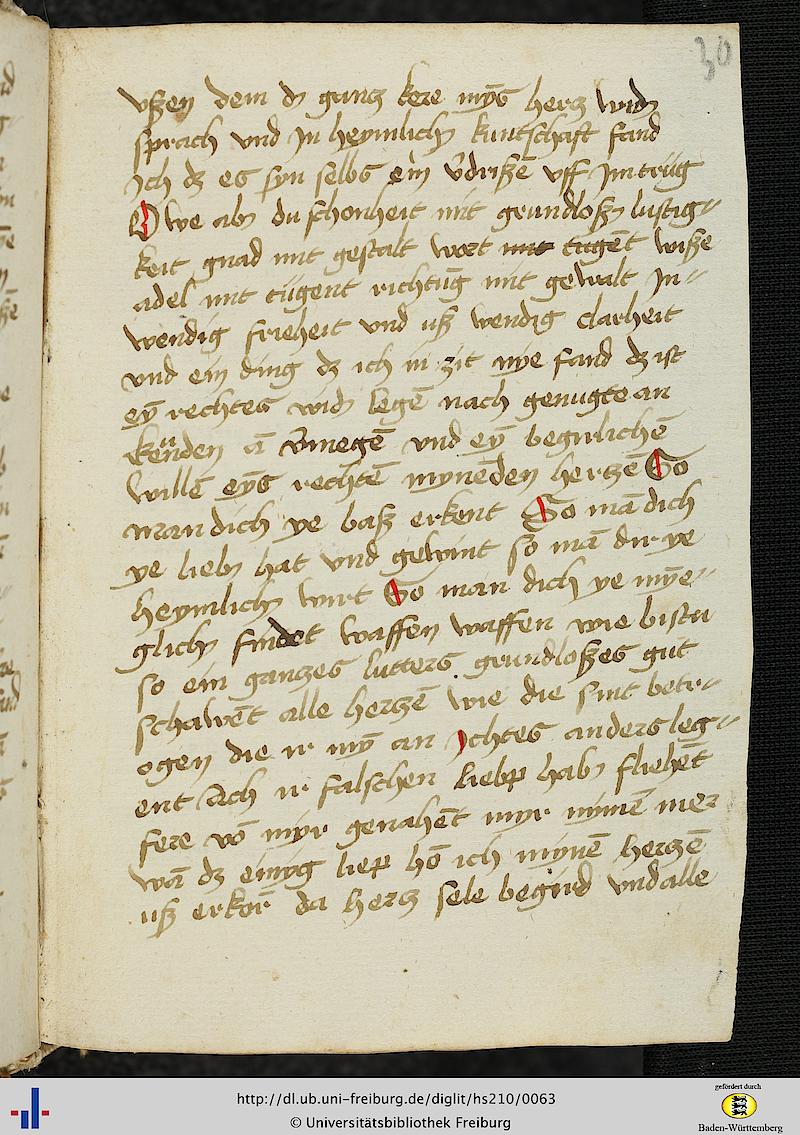 30
vßen dem dz gantz kere myns hertz wider
sprach vnd Jn heymlicher kuntschaft fand
Jch dz es syn selbs ein v̄drißē vff Jm trüg
Owe aber du schonheit mit grundloßer lustig〃
keit gnad mit gestalt wort mit tugēt wiße
adel mit tügent richtūg mit gewalt Jn〃
wendig frieheit vnd uß wendig clarheit
vnd ein ding dz ich in zit nye fand dz ist
eȳ rechtes wider legē nach genugte an
kenden v̄megē vnd eȳ begirlichē
willē eȳs rechtē mynēden hertzē So
man dich ye baß erkent So mā dich
ye lieber hat vnd gewint so mā dir ye
heymlicher wirt So man dich ye mȳe〃
glicher findet waffen waffen wie bistu
so ein gantzes lutters grundloßes gut
schawēt alle hertzē wie die sint betr〃
ogen die ir mȳ an Jchtes anders leg〃
ent Ach ir falschen lieber haber fliehēt
fere vō myr genahēt myr nymē mer
wā dz einyg liep hō ich mynē hertzē
uß erkorn da hertz sele begird vnd alle
http://dl.ub.uni-freiburg.de/diglit/hs210/0063
© Universitätsbibliothek Freiburg
gefördert durch
Baden-Württemberg